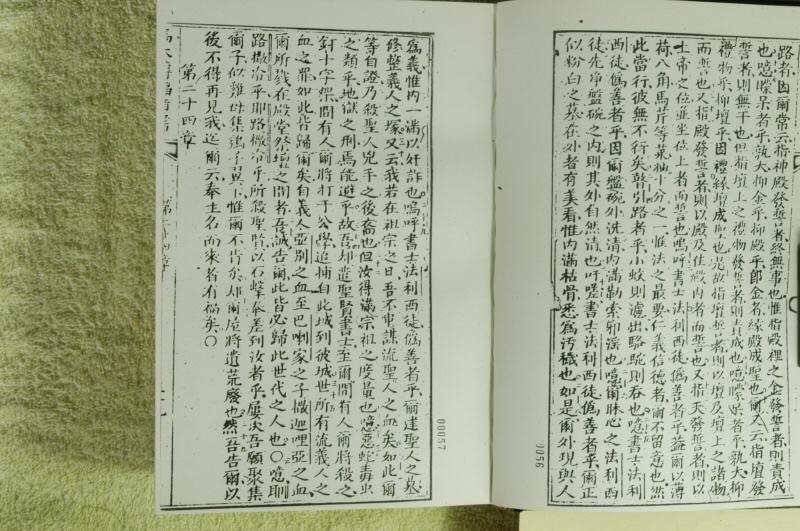 路者因爾常云指神殿發誓者終無事也惟指殿裡之金發誓者則責成
也噫騃呆者乎孰大抑金乎抑殿乎即金者緣殿成聖也爾又云指壇發
誓者則無干也但指壇上之禮物發誓者則責成也噫騃呆者乎孰大抑
禮物乎抑壇乎因禮緣壇成聖也是故指壇誓者則以壇及壇上之諸物
而誓也又指殿發誓者則以殿及住殿內者而誓也又指天發誓者則以
上帝之位並坐位上者而誓也嗚呼書士法利西徒偽善者乎蓋爾以薄
荷八角馬芹等菜抽十分之一惟法之最要仁義信德者爾不留意也然
此當行彼無不行矣瞽引路者乎小蚊則濾出駱駝則吞也噫書士法利
西徒偽善者乎因爾盤碗外洗清內滿勒索邪淫也噫爾昧心之法利西
徒先凈盤碗之內則其外自然清也吁嗟書士法利西徒偽善者乎爾正
似粉白之墓在外者有美看惟內滿枯骨悉為污穢也如是爾外現與人
0056
為義惟內一滿以奸詐也嗚呼書士法利西徒偽善者乎爾建聖人之墓
修整義人之塚又云我若在祖宗之日吾不串謀流聖人之血矣如此爾
等自證乃殺聖人兇手之後裔也但汝得滿宗祖之度量也噫惡蛇毒虫
之類乎地獄之刑焉能避乎故吾却遣聖賢書士至爾間有人爾將殺之
釘十字架間有人爾將打于公學追捕自此城到彼城世所有流義人之
血之罪如此皆歸爾矣自義人亞別之血至巴喇家之子撒迦哩亞之血
爾所戮在殿堂祭壇之間者吾誠告爾此皆必歸此世代之人也〇噫耶
路撒冷乎耶路撒冷乎所殺聖賢以石擊奉差到汝者乎屢次吾願聚集
爾子似雞母集雞子翼下惟爾不肯矣却爾屋將遺荒廢也然吾告爾以
後不得再見我迄爾云奉主名而來者有福矣〇
第二十四章
00057